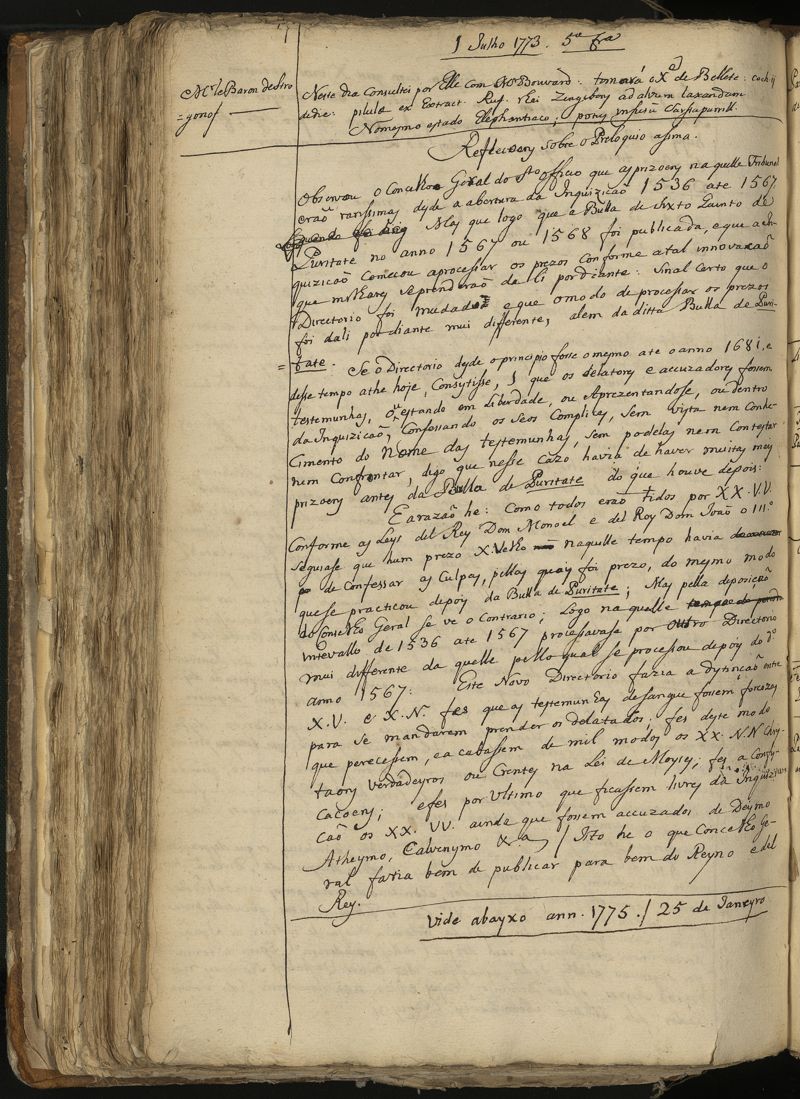 1 Julho 1773. 5ª fra
Mr. le Baron de Stro
=gonof
Neste dia Consultei por Elle com Mr Bouvard: tomará o Xe de Bellete: coch ij
dedie: pilulæ ex Extract. Ruf. rhei Zingibery ad alvum laxandam
No mesmo estado Elephantiaco, poros infusu Sarsaparill.
Reflecoens sobre o Preloquio asima.
Observou o Conselho Geral do Sto officio que as prizoens naquelle Tribunal
eraõ rarissimas desde a abertura da Inquiziçaõ 1536 ate 1567.
Mas que logo que a Bulla de Sixto Quinto de
Puritate no anno 1567 ou 1568 foi publicada, e que a In-
quizicaõ comecou a processar os prezos conforme a tal innovacaõ
que milhares se prenderaõ de li por diante: sinal certo que o
Directorio foi mudado e que o modo de processar os prezos
foi dali por diante mui differente, alem da ditta Bulla de Puri-
=tate. Se o Directorio desde o principio fosse o mesmo ate o anno 1681, e
desse tempo athe hoje, Consistisse, 1 que os delatores e accuzadores fossem
testemunhas, Que estando em Liberdade, ou Aprezentandose, ou dentro
da Inquizicaõ, Confessando os seos Complices, sem vista nem Conhe-
cimento do Nome das testemunhas, sem podelas nem Contestar
nem Confrontar, digo que nesse cazo havia de haver muitas mais
prizoens antes da Bulla de Puritate do que houve depois:
E a razaõ he: como todos eraõ tidos por XX.VV.
Conforme as Leys del Rey Dom Manoel e del Rey Dom Joaõ o III.º
seguiase que hum prezo X.Velho naquelle tempo havia
de Confessar as Culpas, pellas quais foi prezo, do mesmo modo
que se practicou depois da Bulla de Puritate; Mas pella deposicaõ
do Conselho Geral se ve o Contrario; Logo naquelle
intervallo de 1536 ate 1567 processavase por outro Directorio
mui differente da quelle pello qual se processou depois do dº
anno 1567: Este Novo Directorio fazia a distincaõ entre
X.V. e X.N. fes que as testemunhas de sangue fossem forcozas
para se mandarem prender os delatados; fes deste modo
que perecessem, e acabassem de mil modos os XX.NN Chris-
taons verdadeyros ou Crentes na Lei de Moyses; fes a Confis-
cacoens; e fes por ultimo que ficassem livres da Inquizi-
caõ os XX.VV. ainda que fossem accuzados de Deismo
Atheysmo, Calvenysmo &a / Isto he o que Concelho Ge-
ral faria bem de publicar para bem do Reyno e del
Rey.
Vide abayxo ann. 1775. / 25 de Janeyro